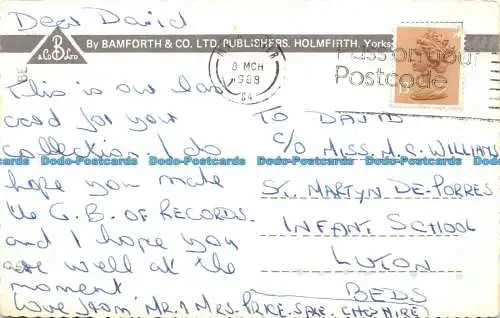 Dear David
By BAMFORTH & CO. LTD, PUBLISHERS, HOLMFIRTH, Yorks
B
& Co LTD
8 MCH
1988
Pass on your
Postcode
This is our last
card for your
collection. I do
hope you make
the G.B. OF RECORDS.
and I hope you
are well at the
moment
Love from, MR. & MRS. PRICE. SALE. CHESHIRE)
TO DAVID
C/O MISS. M. C. WILLIAMS
ST. MARTYN DE-PORRES
INFANT SCHOOL
LUTON
BEDS
Postcards